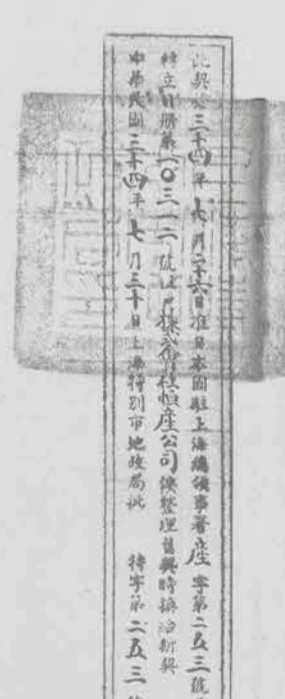 此契於三十四年七月二十六日准日本國駐上海總領事署產字第二五三號
轉立日册第一〇三一二號上月株式會社恒產公司俟整理舊契時換給新契
中華民國三十四年七月三十日上海特別市地政局批 待字第二五三